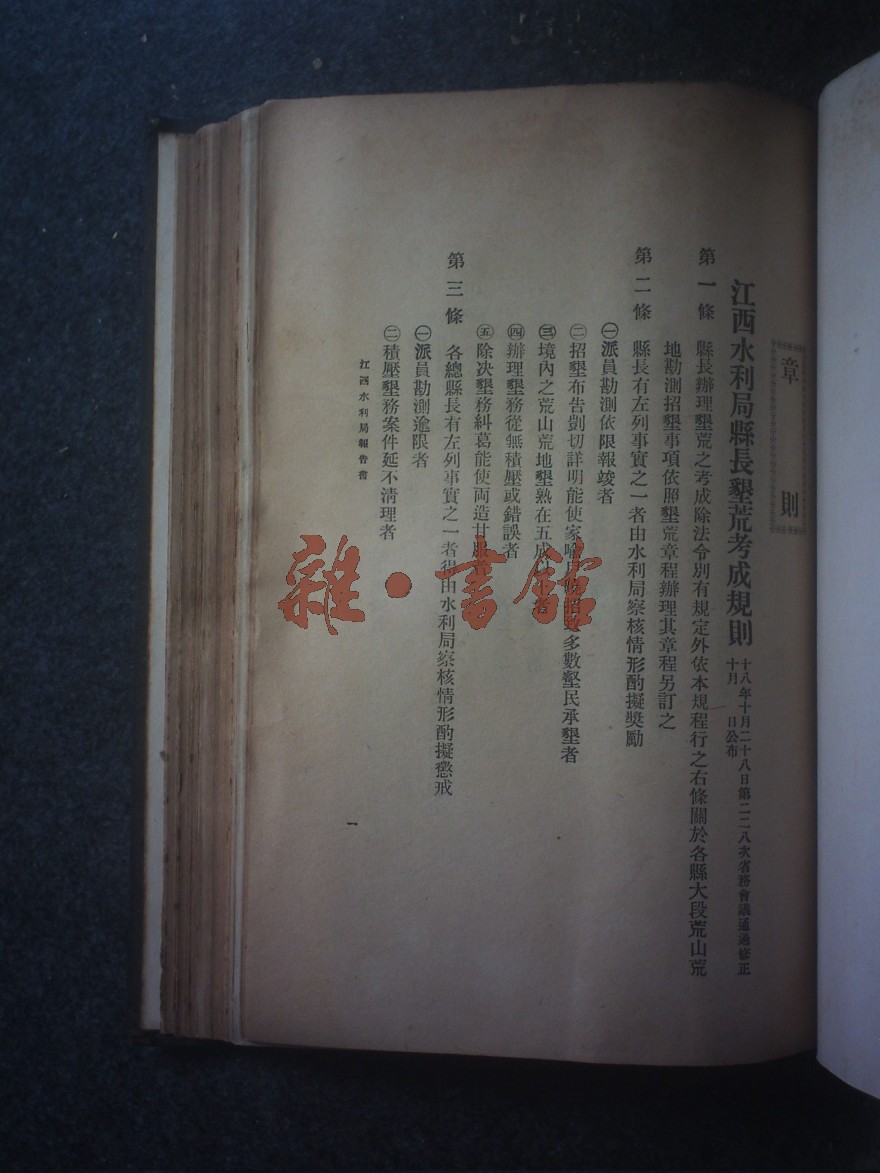 章則
江西水利局縣長墾荒考成規則
十八年十月二十八日第二二八次省務會議通過修正
十月 日公布
第一條 縣長辦理墾荒之考成除法令別有規定外依本規程行之右條關於各縣大段荒山荒
地勘測招墾事項依照墾荒章程辦理其章程另訂之
第二條 縣長有左列事實之一者由水利局察核情形酌擬獎勵
㊀派員勘測依限報竣者
㊁招墾布告剴切詳明能使家喻戶曉招致多數墾民承墾者
㊂境內之荒山荒地墾熟在五成以上者
㊃辦理墾務從無積壓或錯誤者
㊄除決墾務糾葛能使兩造甘服者
第三條 各總縣長有左列事實之一者得由水利局察核情形酌擬懲戒
㊀派員勘測逾限者
㊁積壓墾務案件延不清理者
江西水利局報告書
一
雜·書館